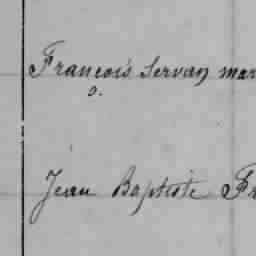 François Servan mar
o.
Jean Baptiste Fr